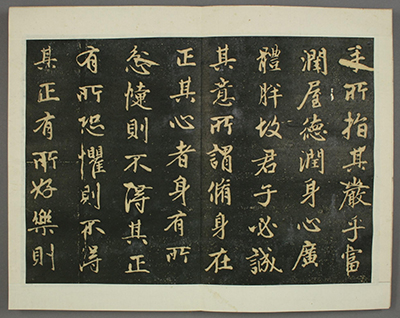 手所指其嚴乎富
潤屋德潤身心廣
體胖故君子必誠
其意所謂脩身在
正其心者身有所
忿懥則不得其正
有所恐懼則不得
其正有所好樂則